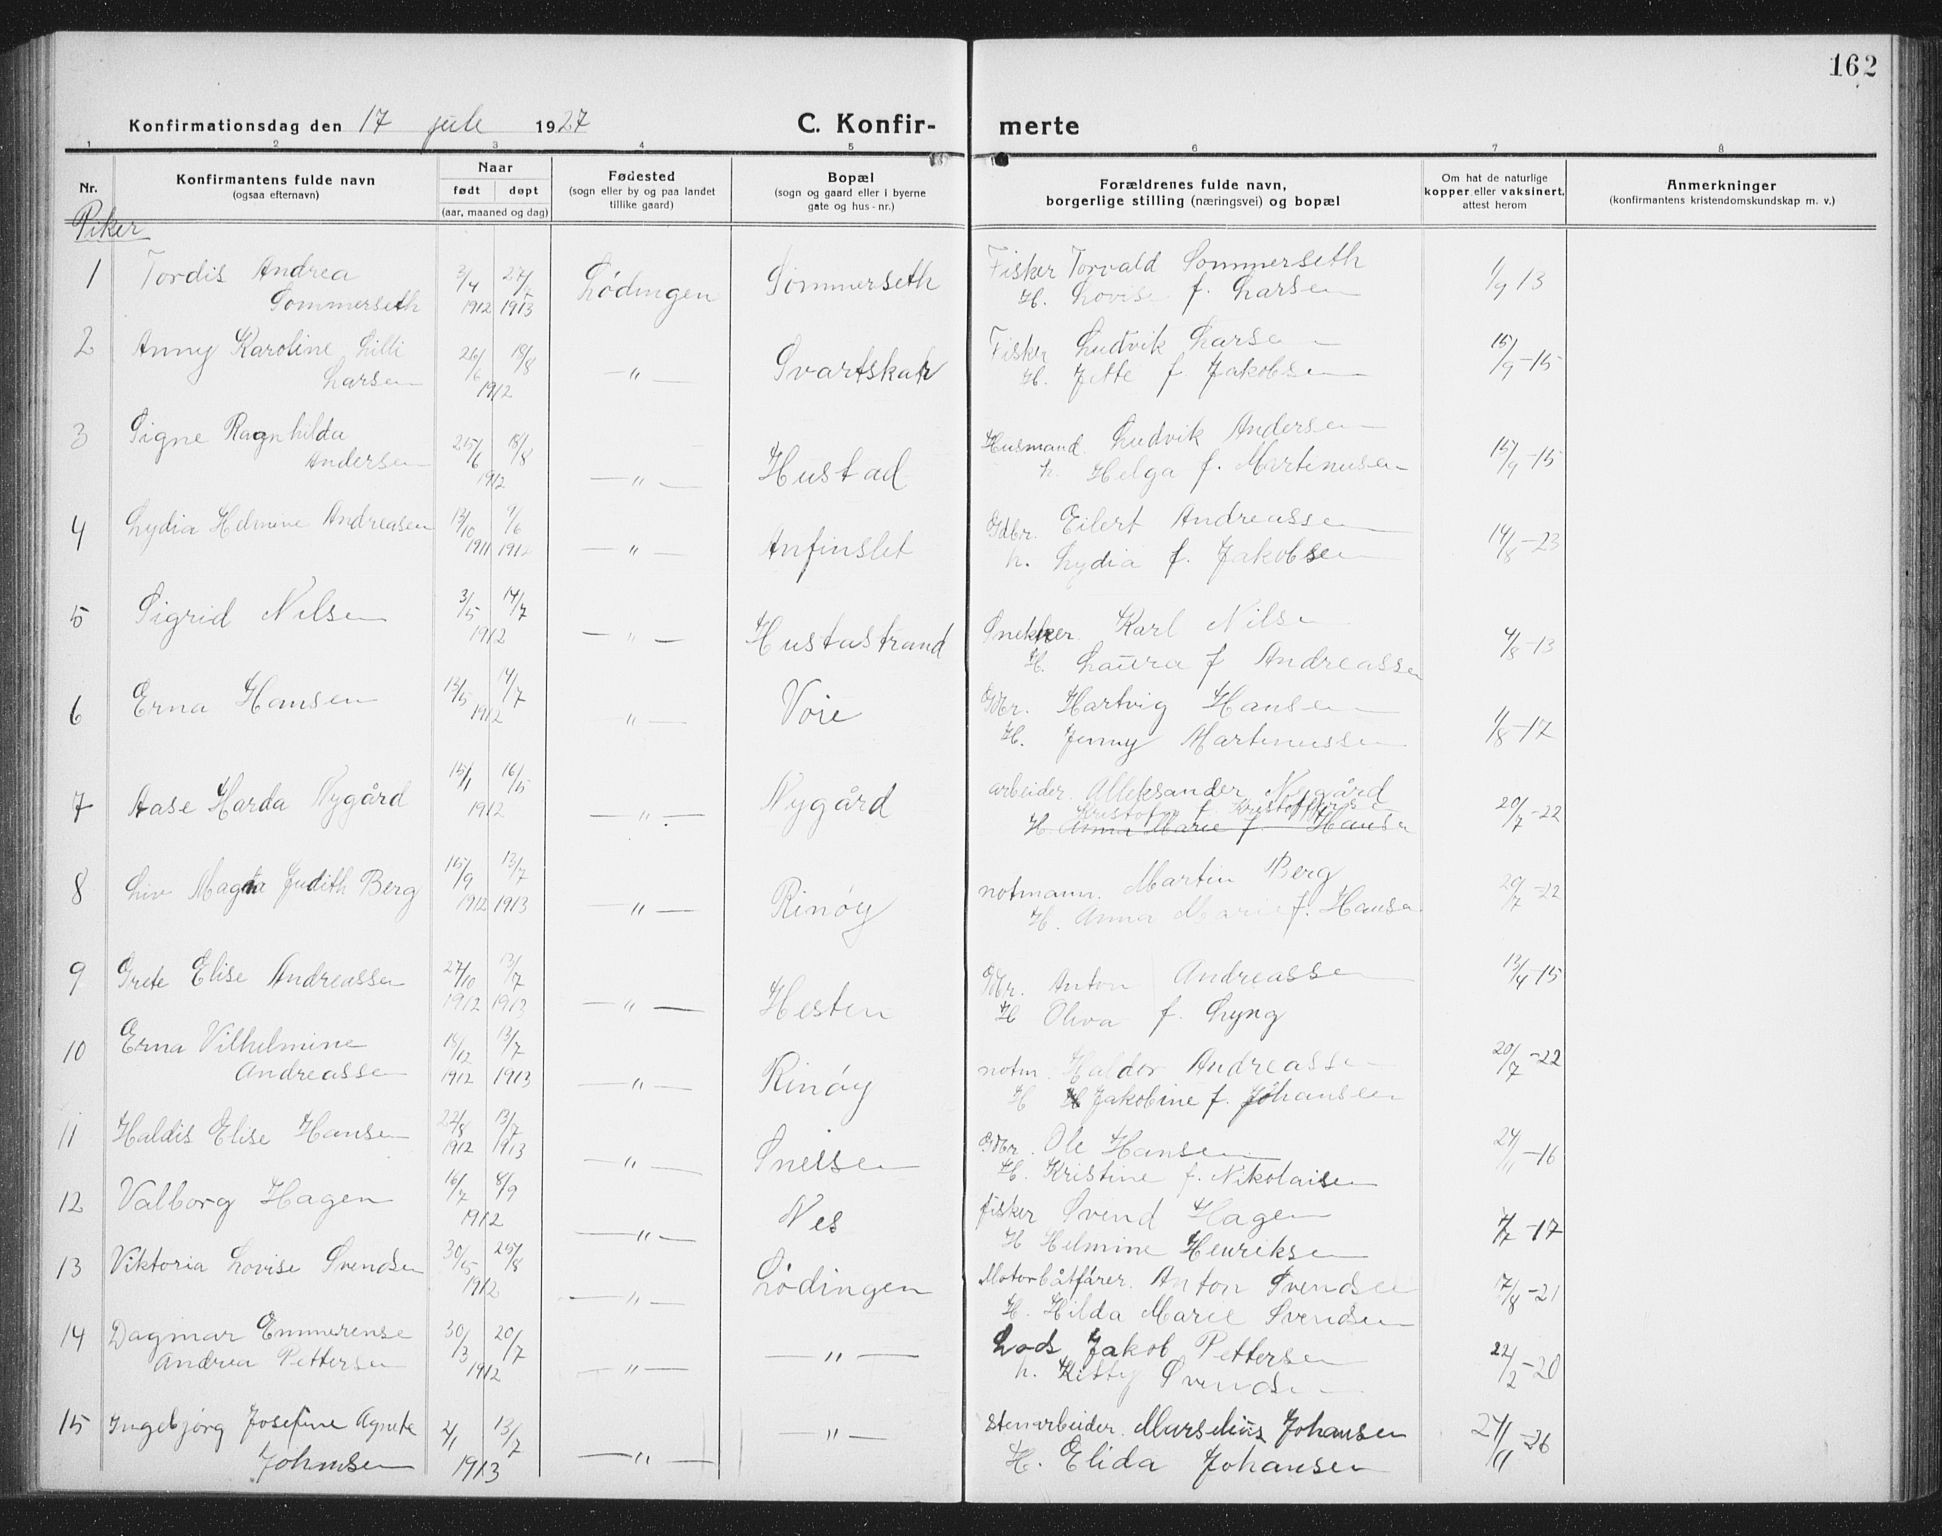 162
Konfirmationsdag den 17 juli 1927
C. Konfir-
merte
1 2 3 4 5 6 7 8
Nr.
Konfirmantens fulde navn
(ogsaa efternavn)
Naar
født døpt
(aar, maaned og dag)
Fødested
(sogn eller by og paa landet
tillike gaard)
Bopæl
(sogn og gaard eller i byerne
gate og hus-nr.)
Forældrenes fulde navn,
borgerlige stilling (næringsvei) og bopæl
Om hat de naturlige
kopper eller vaksinert,
attest herom
Anmerkninger
(konfirmantens kristendomskundskap m. v.)
Piker
1 Tordis Andrea 3/4 27/4 Lødingen Sommerseth Fisker Torvald Sommerseth 1/9 13
Sommerseth 1912 1913 H. Lovise f. Larsen
2 Anny Karoline Lilli 26/6 18/8 — " — Fisker Ludvik Larsen 15/9-15
Larsen 1912 H. Jette f. Jakobsen
3 Signe Ragnhilda 25/6 18/8 — " — Hustad Husmand Ludvik Andersen 15/9-15
Andersen 1912 h. Helga f. Martinusen
4 Lydia Helmine Andreasen 13/10 9/6 — " — Anfinslet Gdbr. Eilert Andreassen 14/8-23
1911 1912 h. Lydia f. Jakobsen
5 Sigrid Nilsen 3/5 14/7 — " — Hustastrand Snekker Karl Nilsen 4/8-13
1912 H. Laura f Andreassen
6 Erna Hansen 13/5 14/7 — " — Voie Gdbr. Hartvig Hansen 1/8-17
1912 H. Jenny Martinussen
7 Aase Harda Nygård 15/1 16/5 — " — Nygård arbeider. Alleksander Nygård 20/7-22
1912 H. Anna Marie f. Hansen
8 Liv Magna Judith Berg 15/9 13/7 — " — Rinøy notmann. Martin Berg 20/7-22
1912 1913 H. Anna Marie f. Hansen
9 Grete Elise Andreassen 27/10 13/7 — " — Hesten Gbr. Anton Andreassen 13/4-15
1912 1913 H Oliva f. Lyng
10 Erna Vilhelmine 18/12 13/7 — " — Rinøy notm. Haldor Andreassen 20/7-22
Andreassen 1912 1913 H Jakobine f. Johansen
11 Haldis Elise Hansen 22/8 13/7 — " — Sneisen Gdbr. Ole Hansen 24/11-16
1912 1913 H. Kristine f. Nikolaisen
12 Valborg Hagen 16/7 8/9 — " — Nes fisker Svend Hagen 7/7-17
1912 H Helmine Henriksen
13 Viktoria Lovise Svendsen 30/5 25/8 — " — Lødingen Motorbåtfører. Anton Svendsen 17/8-21
1912 H. Hilda Marie Svendsen
14 Dagmar Emmerense 30/3 20/7 — " — — " — Lods Jakob Pettersen 22/2-20
Andrea Pettersen 1912 h. Kitty Svendsen
15 Ingebjørg Josefine Agnete 2/1 13/7 — " — — " — stenarbeider. Marselius Johansen 24/11-26
Johansen 1913 H. Elida Johansen